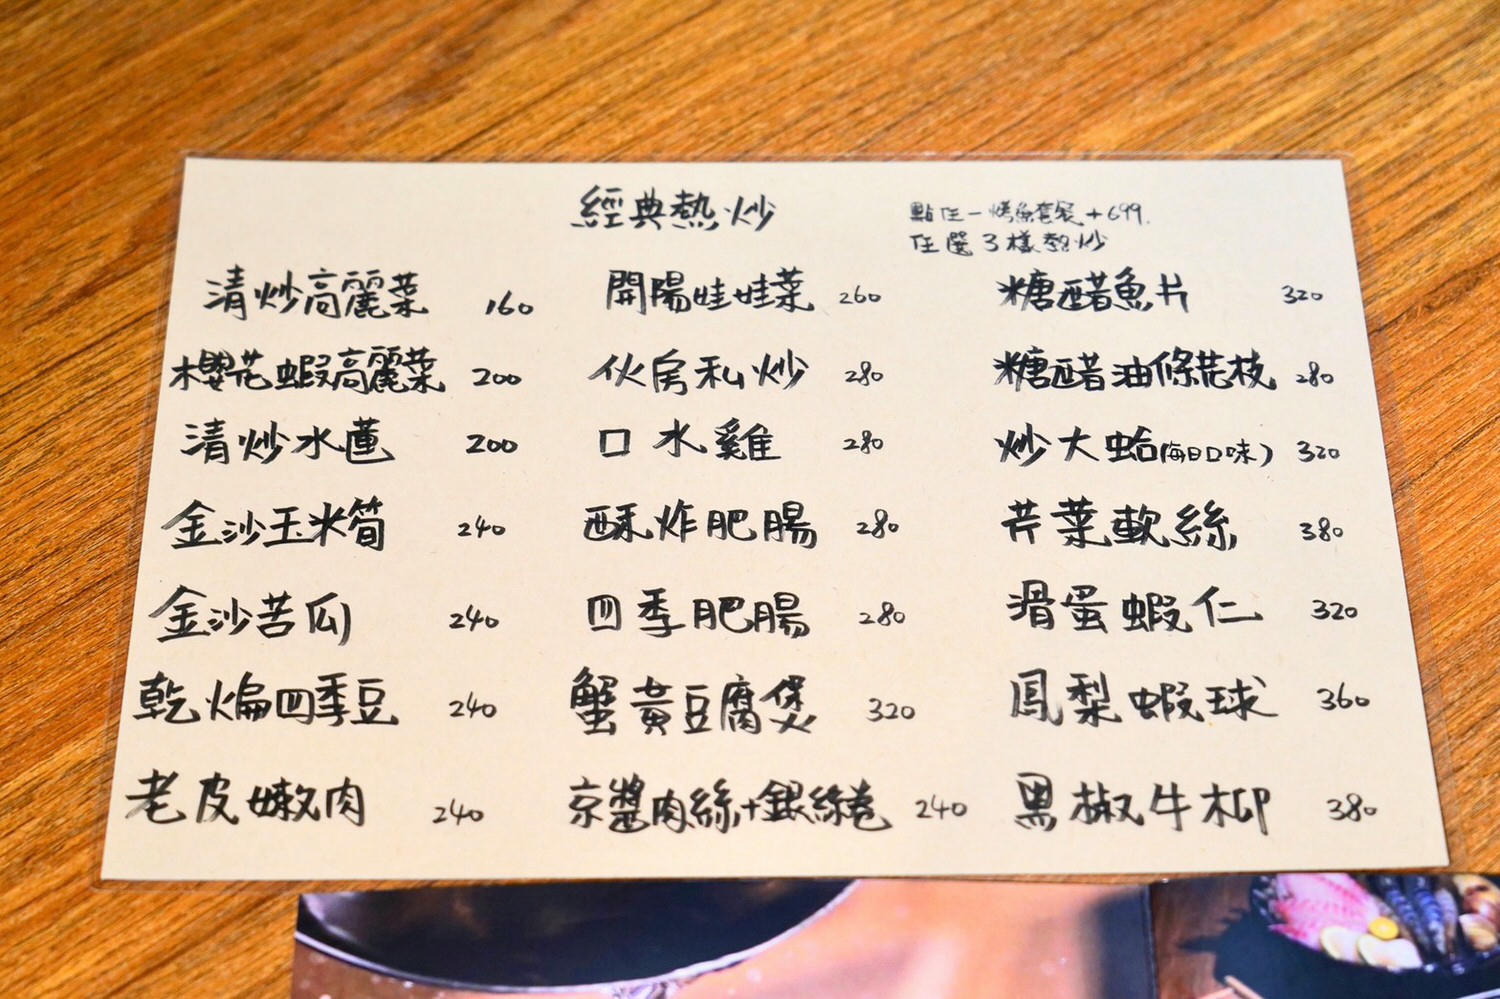 經典熱炒
點任一烤魚套餐+699.
任選3樣熱炒
清炒高麗菜 160
櫻花蝦高麗菜 200
清炒水蓮 200
金沙玉米筍 240
金沙苦瓜 240
乾煸四季豆 240
老皮嫩肉 240
開陽娃娃菜 260
伙房私炒 280
口水雞 280
酥炸肥腸 280
四季肥腸 280
蟹黃豆腐煲 320
京醬肉絲+銀絲卷 240
糖醋魚片 320
糖醋油條花枝 280
炒大蛤(每日口味) 320
芹菜軟絲 380
滑蛋蝦仁 320
鳳梨蝦球 360
黑椒牛柳 380